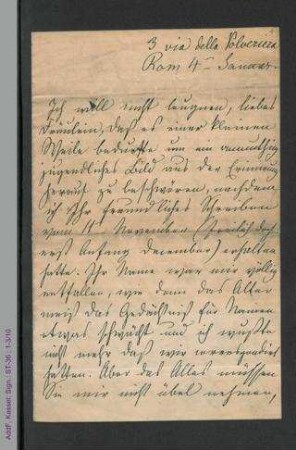 3 via delle Polveriera
Rom 4ten Januar.
Ich will nicht leugnen, liebes
Fräulein, daß es einer kleinen
Weile bedurfte um ein anmuthig
jugendliches Bild aus der Erinnerung
herauf zu beschwören, nachdem
ich Ihr freundliches Schreiben
vom 11ten November (freilich doch
erst Anfang December) erhalten
hatte. Ihr Name war mir völlig
entfallen, wie denn das Alter
meist das Gedächtniß für Namen
etwas schwächt und ich wußte
nicht mehr daß wir correspondirt
hatten. Aber das Alles müssen
Sie mir nicht übel nehmen,
AddF, Kassel, Sign.: ST-36 ; 1-3/10